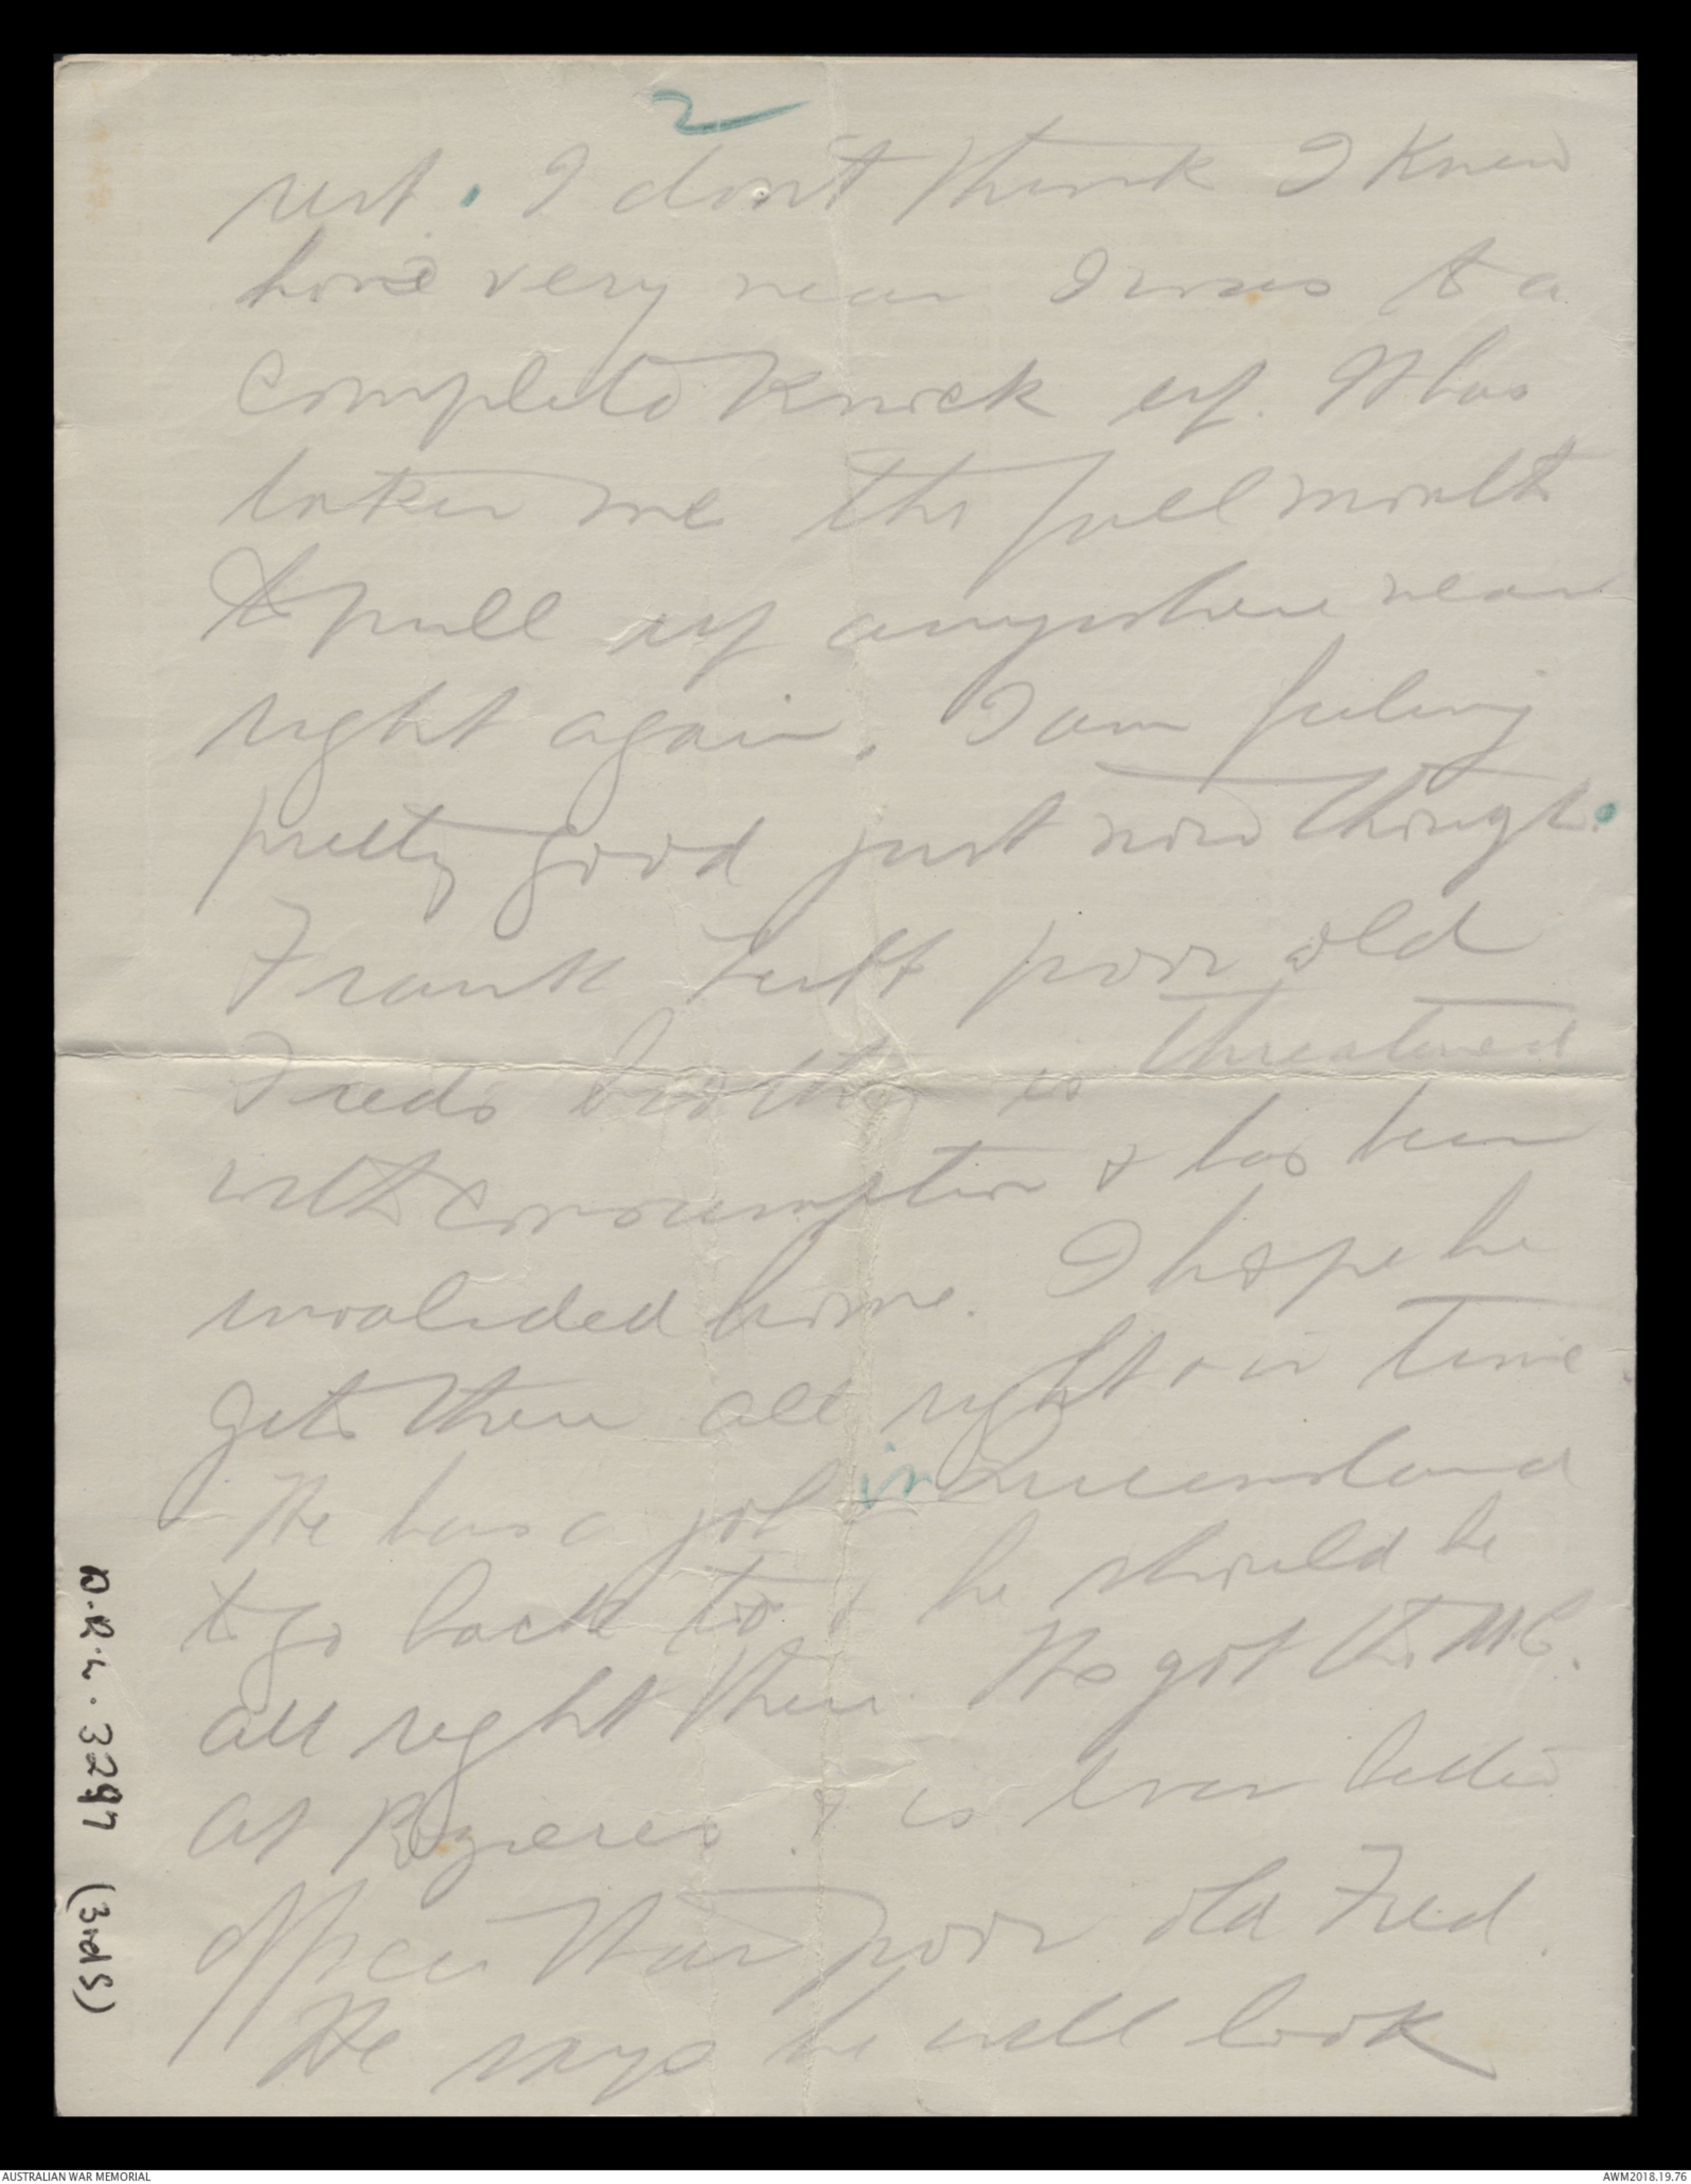 2
rest. I don't think I knew
how very near I was to a
complete knock up. It has
taken me the full month
to pull up anywhere near
right again. I am feeling
pretty good just now though.
Frank Tuff poor old
Freds brother is threatened
with consumption & has been
invalided home. I hope he
gets there all right & in time.
He has a job in Queensland
to go back to & he should be
all right there. He got the M.C.
at Pozieres & is even better
officer than poor old Fred.
He says he will look
D.R.L. 3297 (3rd S)
AUSTRALIAN WAR MEMORIAL
AWM2018.19.76